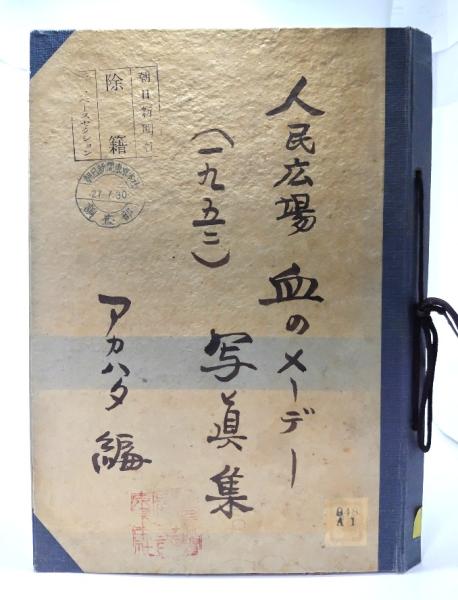 人民広場 血のメーデー
(一九五二)
写眞集
アカハタ 編
朝日新聞社
除籍
データベースセクション
朝日新聞東京本社
27.7.30
調査部
A1